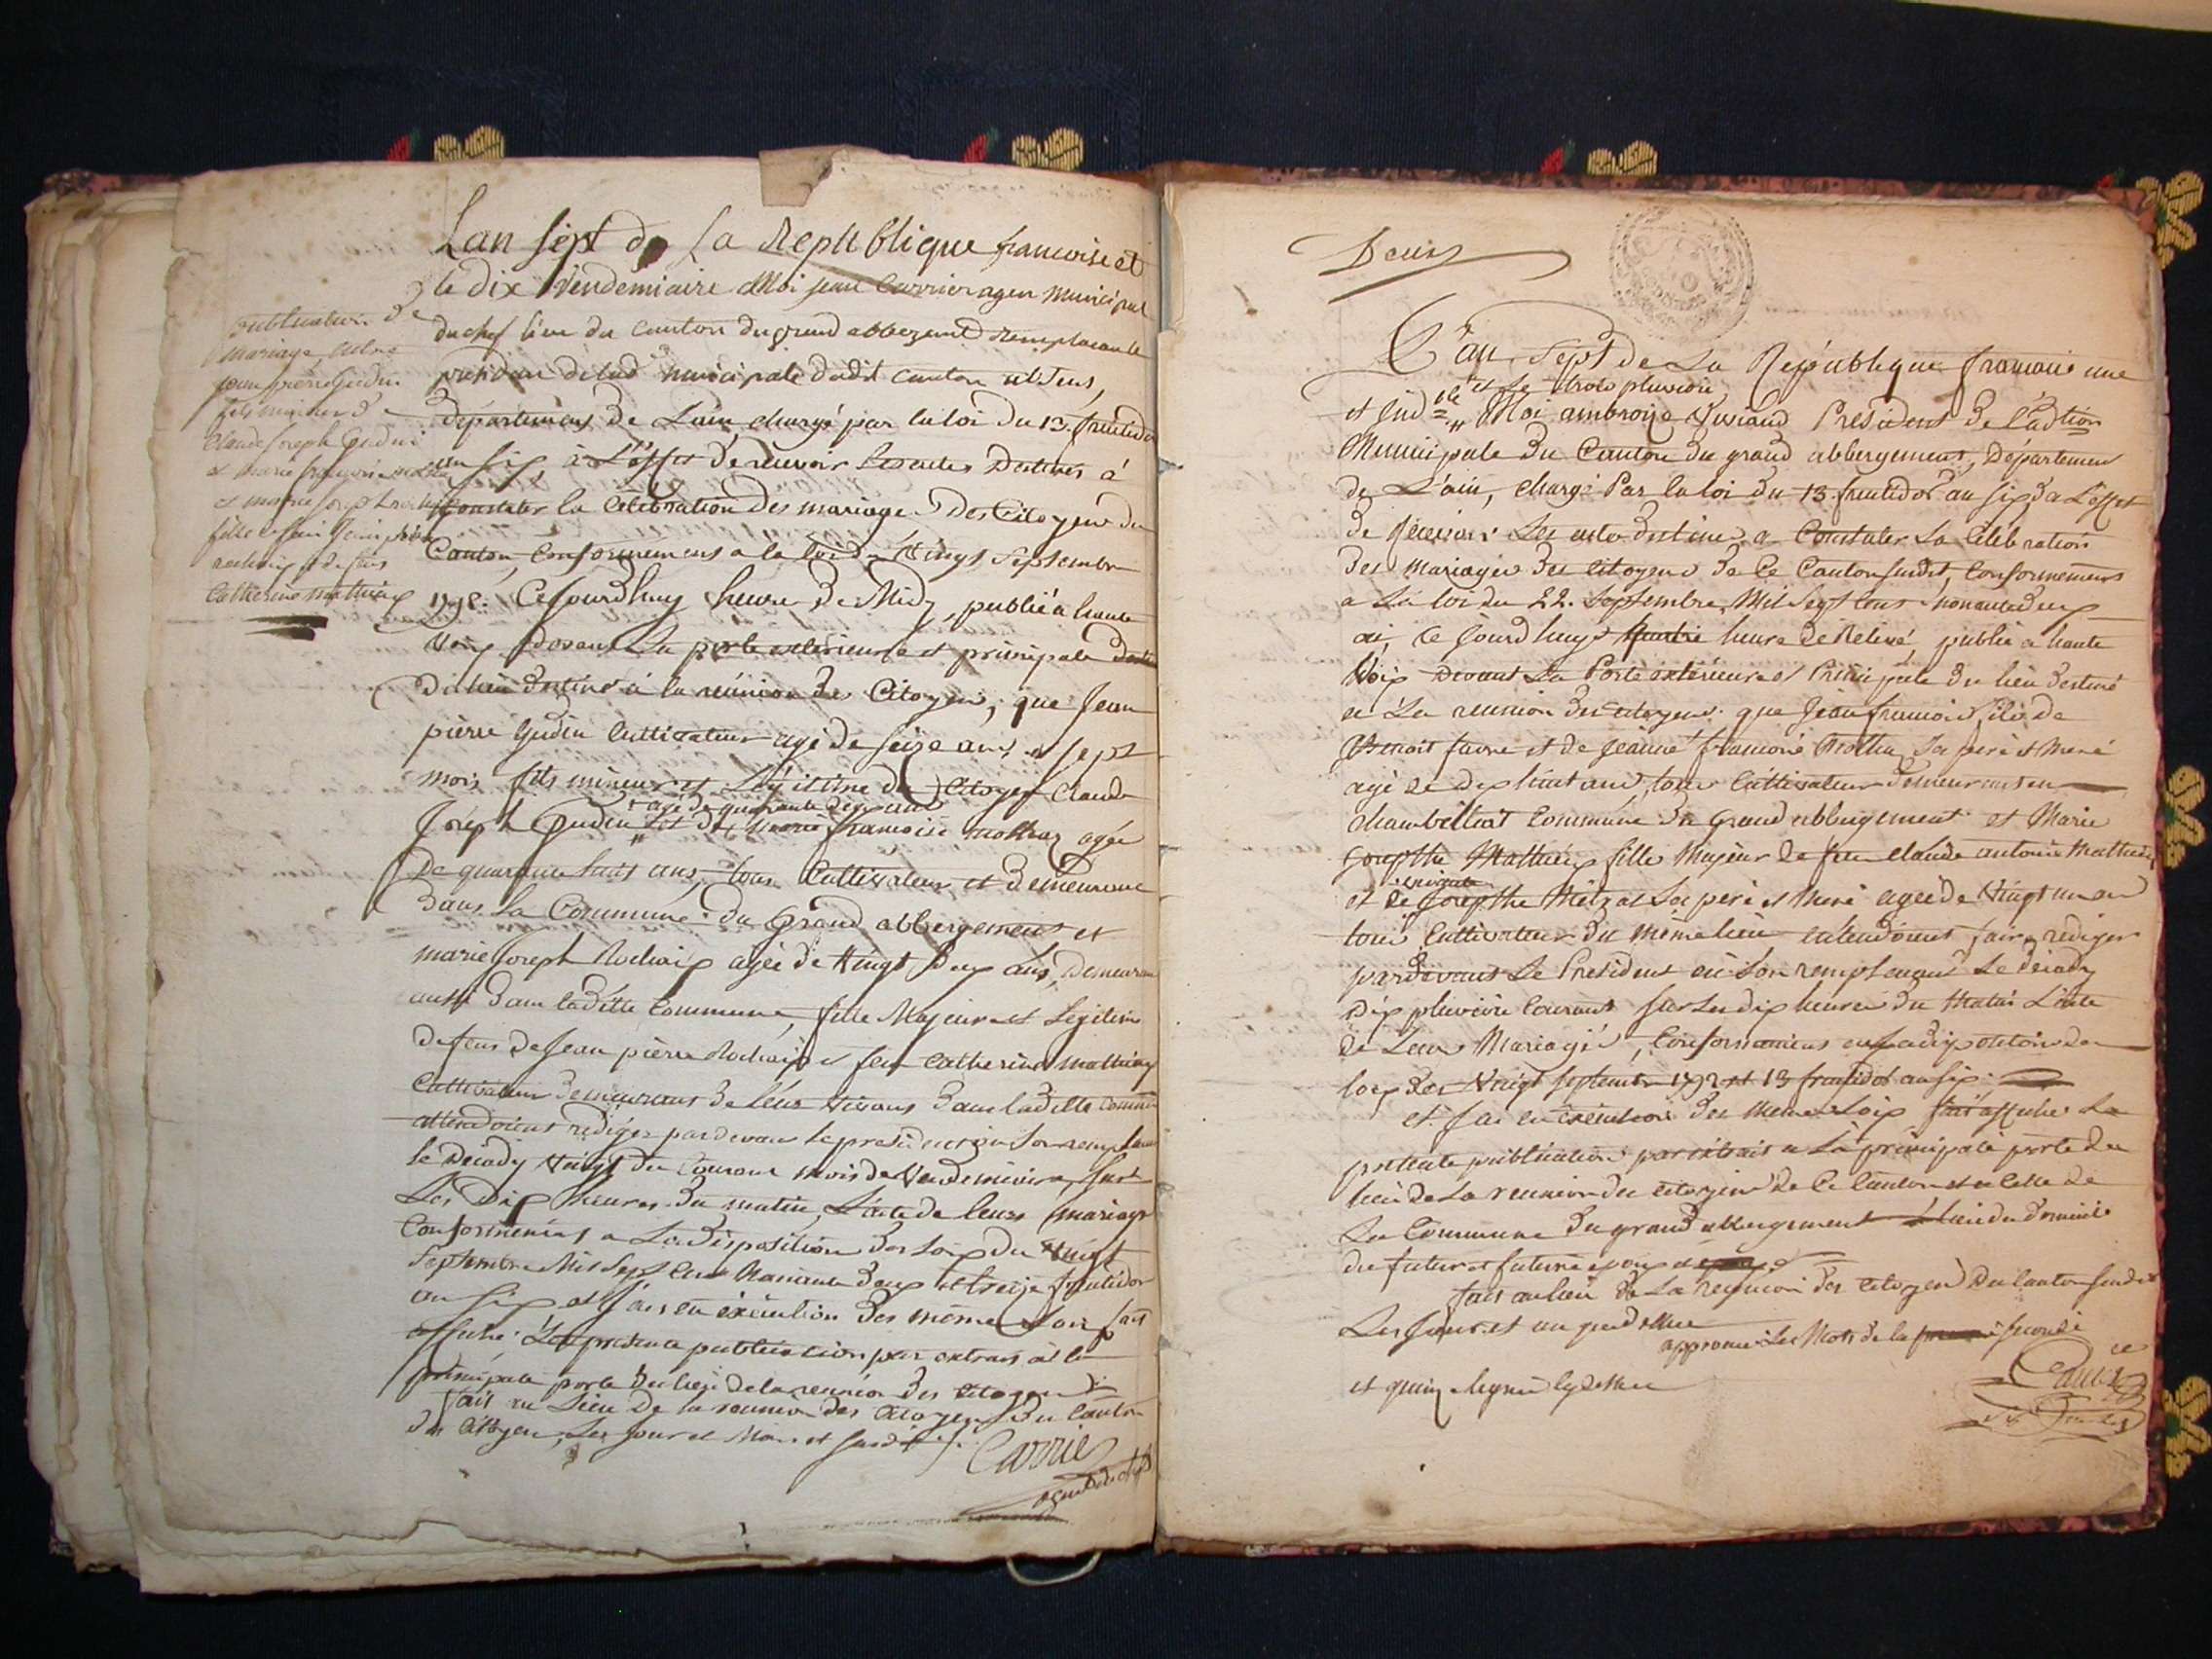 publication de
mariage entre
jean pierre Gudin
fils mineur de
Claude Joseph Gudin
et marie françoise mollaz
et marie Joseph Rochaix
fille de feu Jean pierre
rochaix et de feu
Catherine mathieux
Lan sept de la Republique francoise et
le dix Vendemiaire Moi jean Carrier agen municipal
du chef lieu du canton du grand abbergement remplacant le
president de lad municipale dudit canton
departement de Lain, chargé par la loi du 13. fructidor
an six, à L'effet de recevoir les actes destinés à
constater la Celebration des mariages des Citoyens du
Canton, Conformement a la loi du Vingt Septembre
1792. Cejourdhuy heure de Midy, publié à haute
voix devant La porte exterieure et principale
du lieu destiné à la reunion des Citoyens, que Jean
pierre Gudin Cultivateur agé de seize ans et sept
mois fils mineur et Legitime de Citoyen Claude
agé de quarante six ans
Joseph Gudin et de Marie francoise mollaz agée
De quarante huit ans, tous Cultivateurs et Demeurans
dans la Commune du Grand abbergement et
marie Joseph Rochaix agée de Vingt Deux ans, Demeurant
aussi dans laditte Commune, fille Majeure et Legitime
de feus de Jean pierre Rochaix et feu Catherine Mathieux
Cultivateurs demeurans de leurs vivans dans laditte Commune
entendoient rediger pardevant le president ou son remplacant
le Decady Vingt du Courant mois de Vendemiaire, sur
Les Dix heures du matin, L'acte de leurs mariage
Conformement a La Disposition des loix du Vingt
Septembre Mil Sept Cent Nonante deux et treize fructidor
an six et J'ai en execution des mêmes Loix fait
afficher La presente publication par extrait à la
principale porte du lieu de la reunion des Citoyens
fait au Lieu de la reunion des Citoyens du Canton
Les jour et Mois et susdit
Carrier
Deux
L'an Sept de La République francaise une
et le trois pluviose
et indble Moi ambroise Vuviand President de L'adtion
Municipale du Canton du grand abbergement, Departement
de L'ain, chargé Par la loi du 13. fructidor an six a L'effet
de recevoir Les actes destinés a Constater La Celebration
des Mariages des Citoyens de Ce Canton susdit, Conformement
a La loi du 22. Septembre Mil Sept Cens nonante deux
ai, Ce Jourdhuy heure de Relevé, publié a haute
Voix Devant La Porte exterieure et Principale du lieu destiné
a La reunion des Citoyens que Jean francois fils de
Benoit favre et de Jeanne francoise Mollaz Sa pere et mere
agé de Dix huit ans, tous Cultivateurs Demeurans en
chambéttiat Commune du Grand abbergement et Marie
Josepthe Mathieux fille Majeure de feu Claude antoine Mathieux
et de Josepthe Métraz Sa pere et Mere agée de Vingt un an
tous Cultivateurs du même lieu entendoient faire rediger
pardevant Le President ou Son remplacant Le Decady
Dix pluviose Courant sur Les dix heures du Matin L'acte
de Leur Mariage, Conformement aux dispositions des
loix des Vingt septembre 1792 et 13 fructidor an six.
et J'ai en execution des memes Loix fait afficher La
presente publication par extrait a La principale porte du
lieu de La reunion des Citoyens de Ce Canton et a Celle de
La Commune du grand abbergement Lieu du domicile
du futur et future epoux
fait au lieu de La reunion des Citoyens du Canton susdit
Les jour et an que dessus
approuvé Les Mots de la seconde
et quinz ligne cy dessus